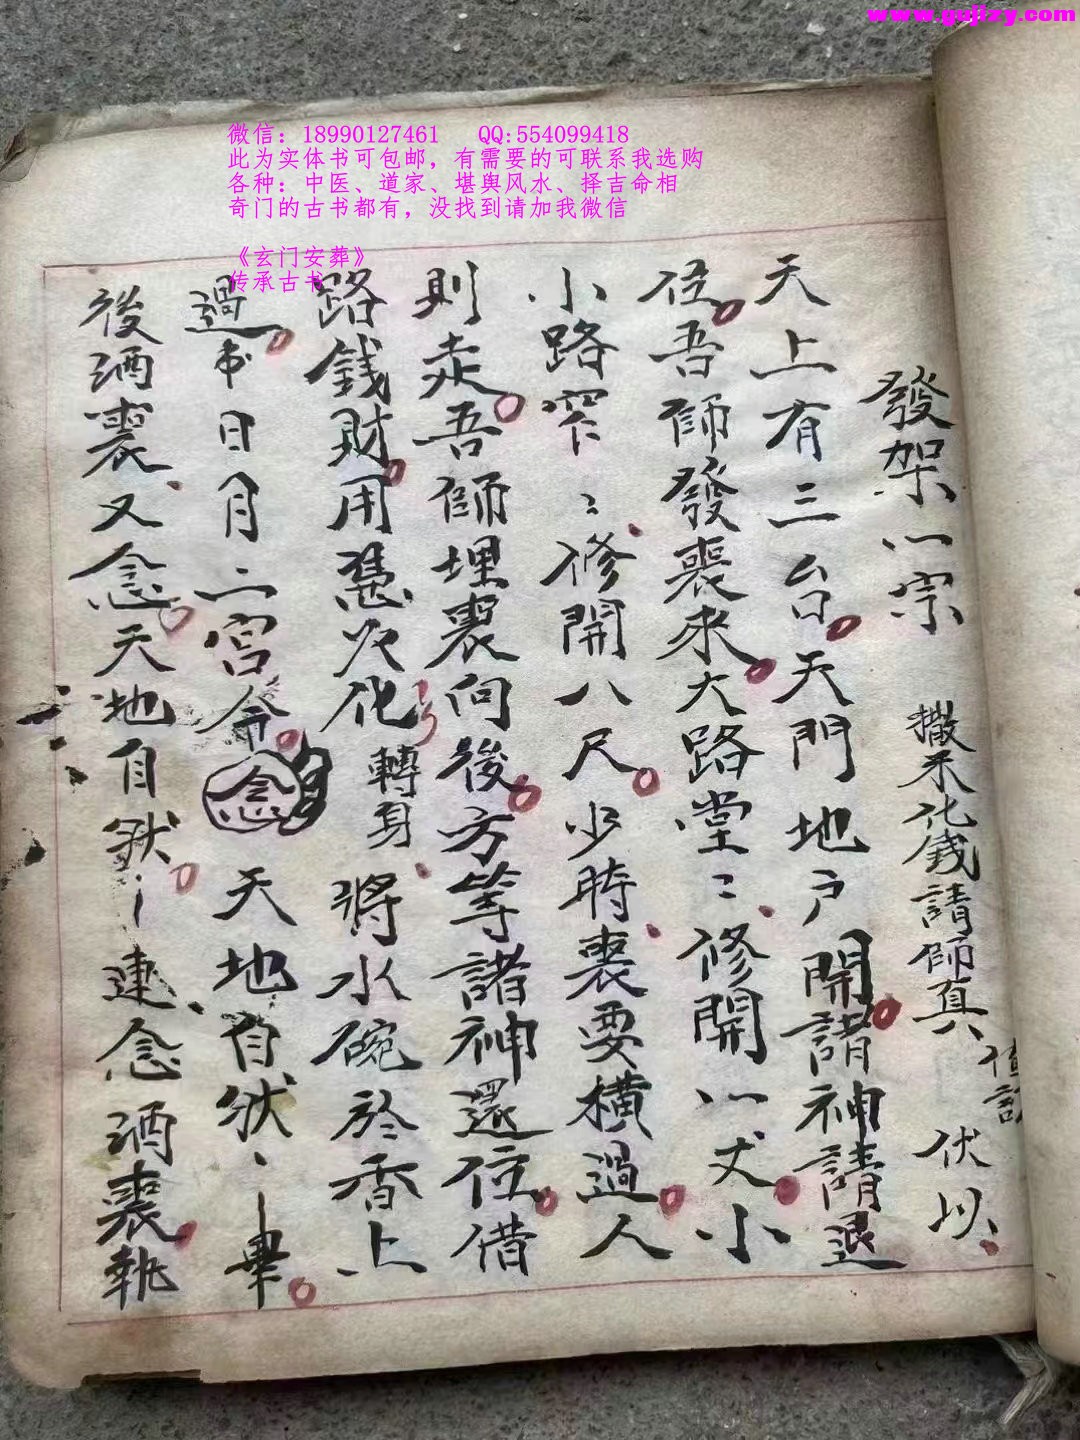 www.gujizy.com
微信：18990127461 QQ:554099418
此为实体书可包邮，有需要的可联系我选购
各种：中医、道家、堪舆风水、择吉命相
奇门的古书都有，没找到请加我微信
《玄门安葬》
传承古书
發架一宗 撒米化錢請師真 伏以
天上有三台天門地户開諸神請退
位吾師發喪來大路堂〻修開一丈小
小路窄〻修開八尺少時喪要橫過人
則走吾師埋喪向後方等諸神還位借
路錢財用憑火化轉身將水碗於香上
過書日月二宮念天地自然〻畢
後洒喪又念天地自然〻連念洒喪執